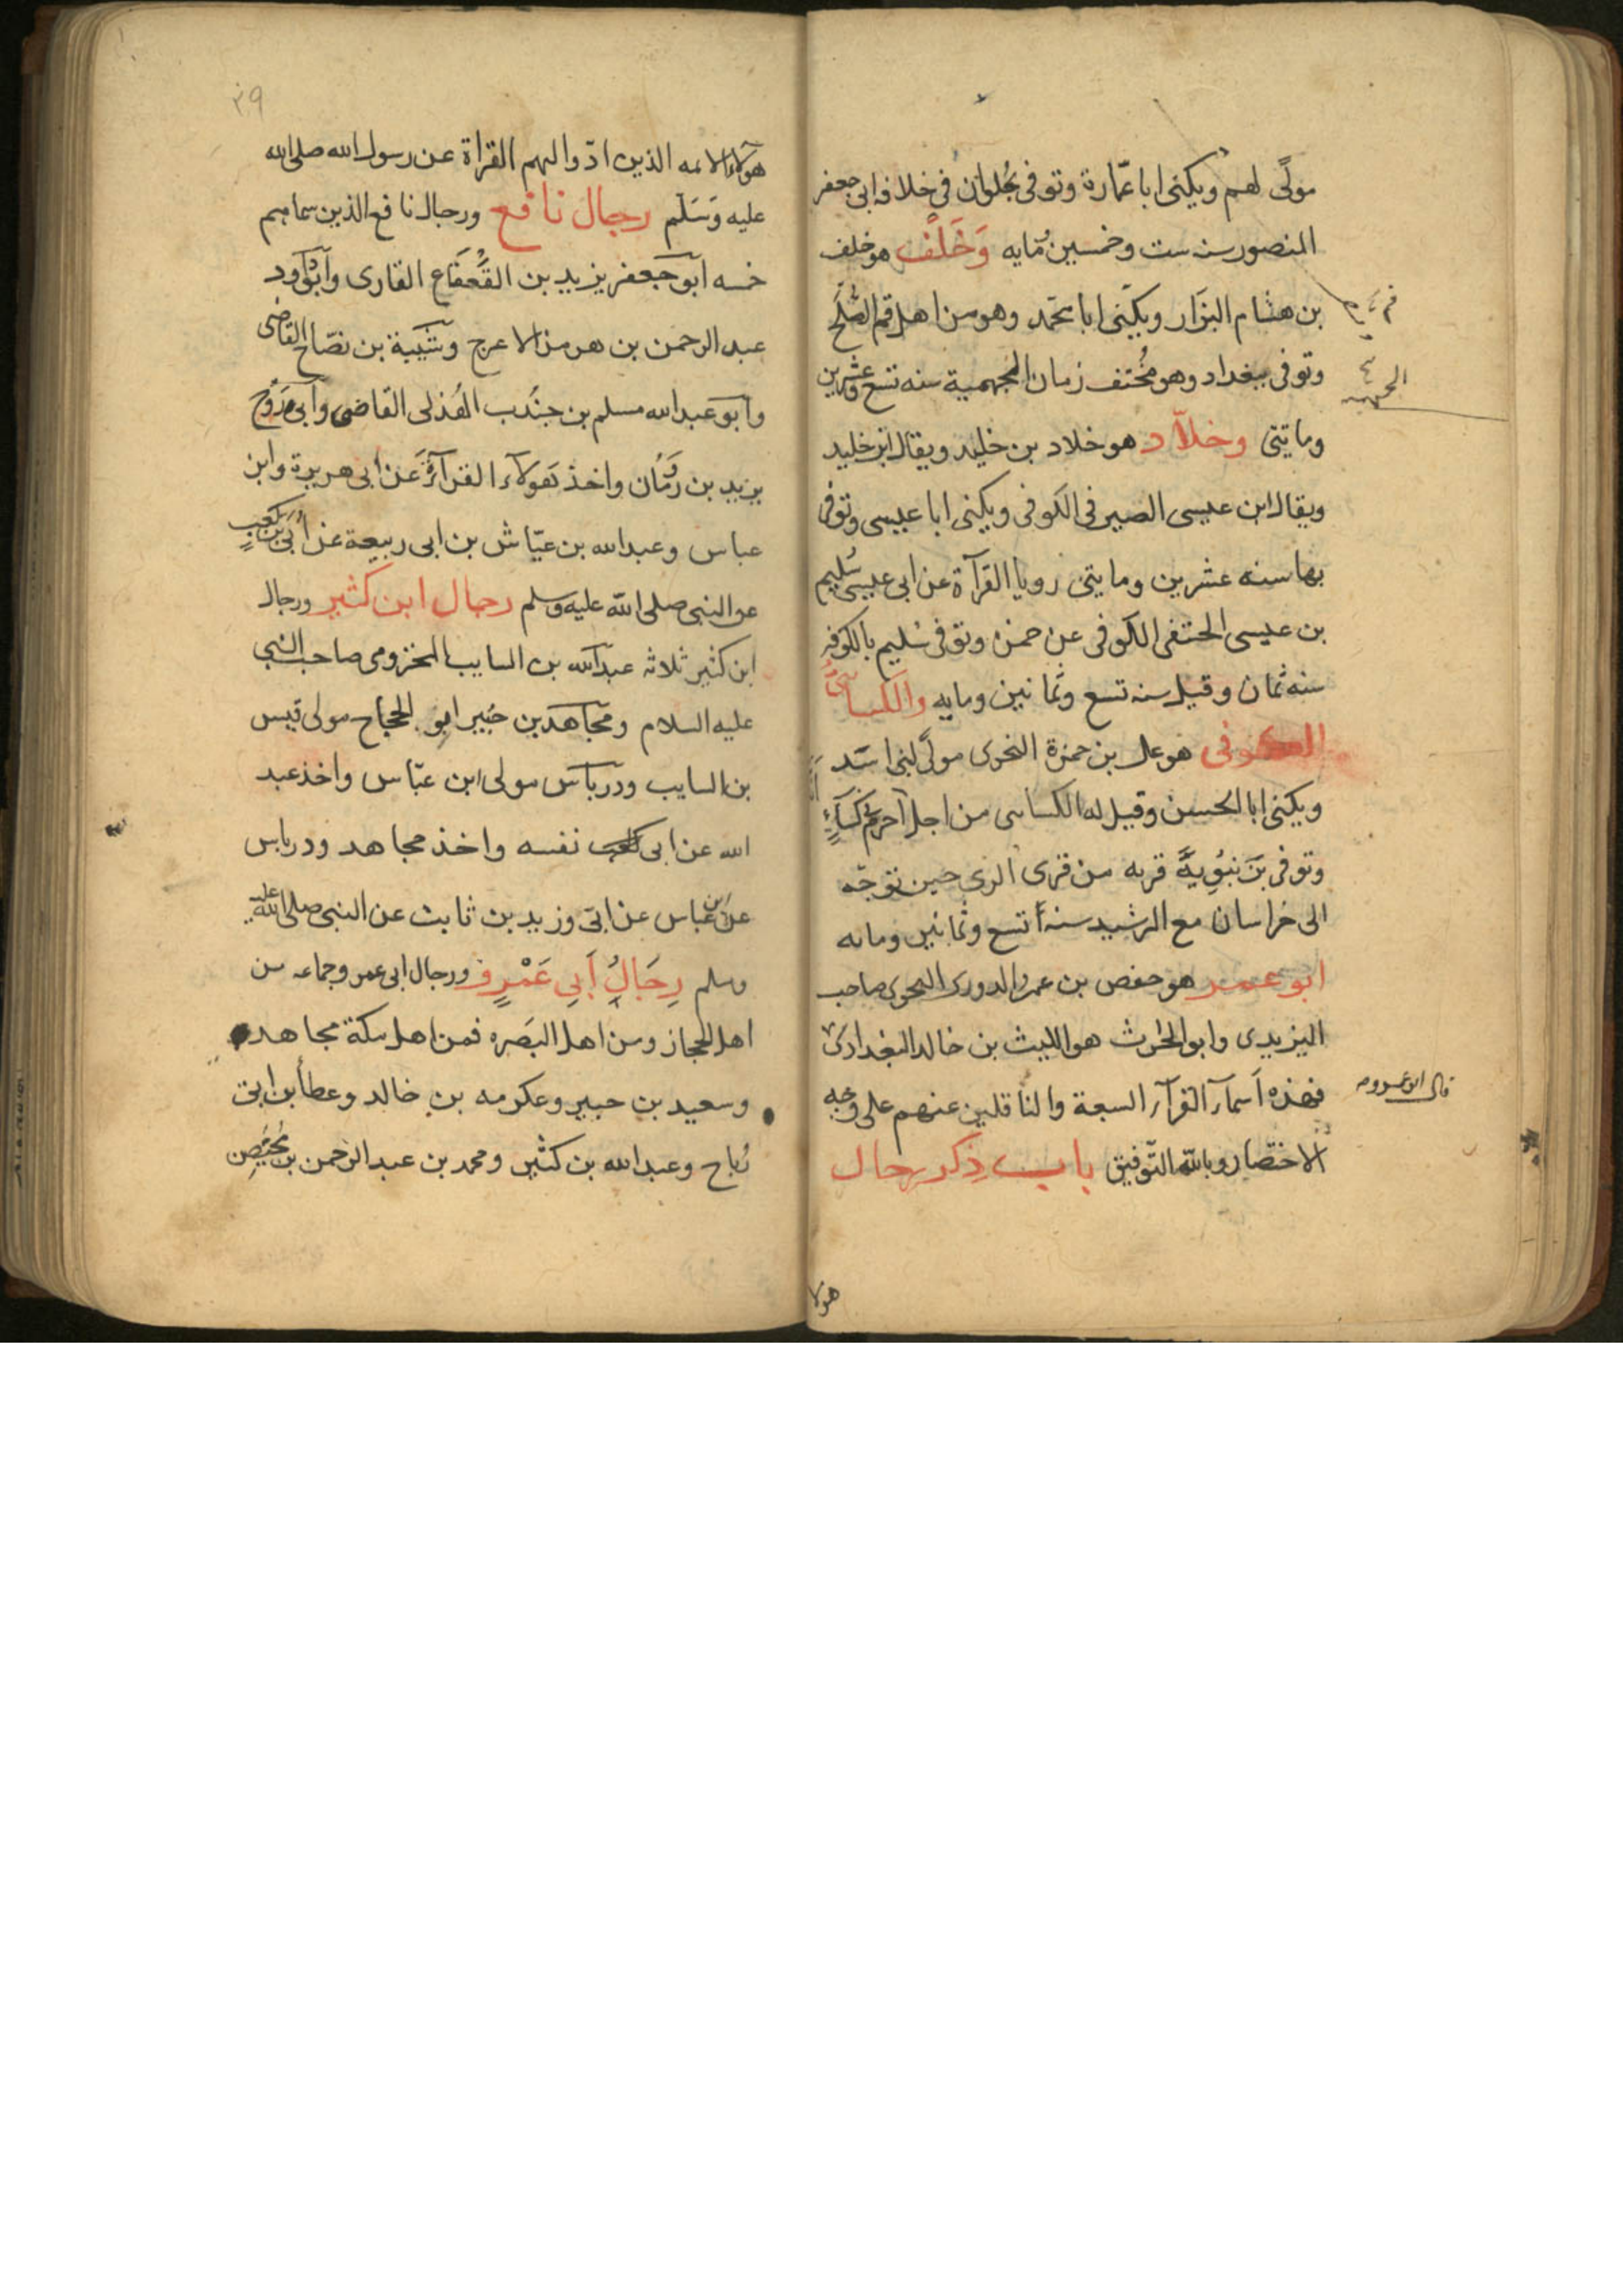 مولًى لهم ويكنى ابا عمّارة وتوفى بحُلوان فى خلافه ابى جعفر
المنصور سنه ست وخمسين ومايه وَخَلَف هو خلف
بن هشام البزار ويكنى ابا محمد وهو من اهل فم الصلح
وتوفى ببغداد وهو مُختف زمان الجهمية سنه تسع وعشرين
وما يتى وخلاّد هو خلاد بن خليد ويقال ابن خليد
ويقال ابن عيسى الصير فى الكوفى ويكنى ابا عيسى وتوفى
بها سنه عشرين وما يتى رويا القرآة عن ابى عيسى سُليم
بن عيسى الحنفى الكوفى عن حمزه وتوفى سُليم بالكوفه
سنه ثمان وقيل سنه تسع وثمانين ومايه والكسائى
الكوفى هو على بن حمزة النحوى مولًى لبنى اسد
ويكنى ابا الحسن وقيل له الكساى من اجل انه احرم فى كساءٍ
وتوفى برَنبُويهَ قريه من قرى الرى حين توجّه
الى خراسان مع الرشيد سنه تسع وثمانين ومايه
ابو عمر هو حفص بن عمر الدورى النحوى صاحب
اليزيدى وابو الحرث هو الليث بن خالد البغدادى
فهذه اسمآء القرآء السبعة والناقلين عنهم على وجه
الاختصار وبالله التوفيق باب ذكر رجال
قال ابو عمرو
هولا
٣٩
هولآء الايمه الذين ادّوا اليهم القراة عن رسول الله صلى الله
عليه وَسَلم رجال نافع ورجال نافع الذين سماهم
خمسه ابو جعفر يزيد بن القَعقَاع القارى وابو داود
عبد الرحمن بن هرمز الاعرج وشَيبة بن نصّاح القاضى
وابو عبد الله مسلم بن جندُب الهُذلى القاضى وابى رَوح
يزيد بن رُومَان واخذ هولآء القرآة عَن ابى هريرة وابن
عباس وعبد الله بن عيّاش بن ابى ربيعة عن اُبَى بن كعبٍ
عن النبى صلى الله عليه وسلم رجال ابن كثير ورجال
ابن كثير ثلاثه عبد الله بن السايب المخزومى صاحب النبى
عليه السلام ومجاهد بن جُبير ابو الحجاج مولى قيس
بن السايب ودرباس مولى ابن عبّاس واخذ عبد
الله عن ابى نفسه واخذ مجاهد ودرباس
عن ابن عباس عن ابىّ وزيد بن ثابت عن النبى صلى الله عليه
وسلم رِجَالُ اَبِى عَمْرٍو ورجال ابى عمر وجماعه من
اهل الحجاز ومن اهل البَصره فمن اهل مكة مجاهد
وسعيد بن جبير وعكرمه بن خالد وعطأ بن ابى
رُباح وعبد الله بن كثير ومحمد بن عبد الرحمن بن مُحَيصِن